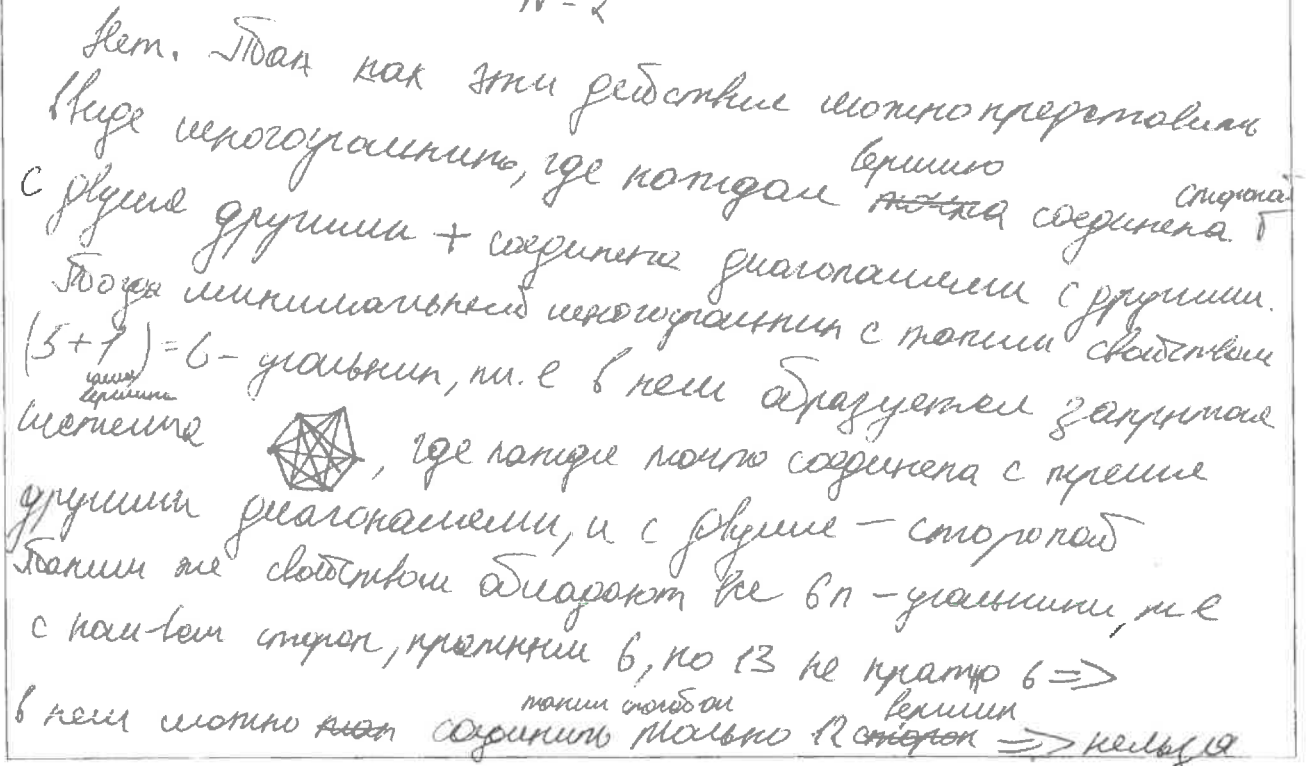 N-2
Нет. Так как эти действия можно представить
ввиде многогранника, где каждая вершина соединена сторона
с двумя другими + соединена диагоналями с другими.
Тогда минимальный многогранник с таким свойством
(5+1) = 6 - угольник, т. е в нем образуется запрктая
сама вершина
система , где каждя точка соединена с тремя
другими диагоналями, и с двумя — стороной
Таким же свойством обладают все 6n - угольники, т е
с кол-вом сторон, кратным 6, но 13 не кратно 6 =>
в нем можно таким способом соединить только 12 вершин => нельзя